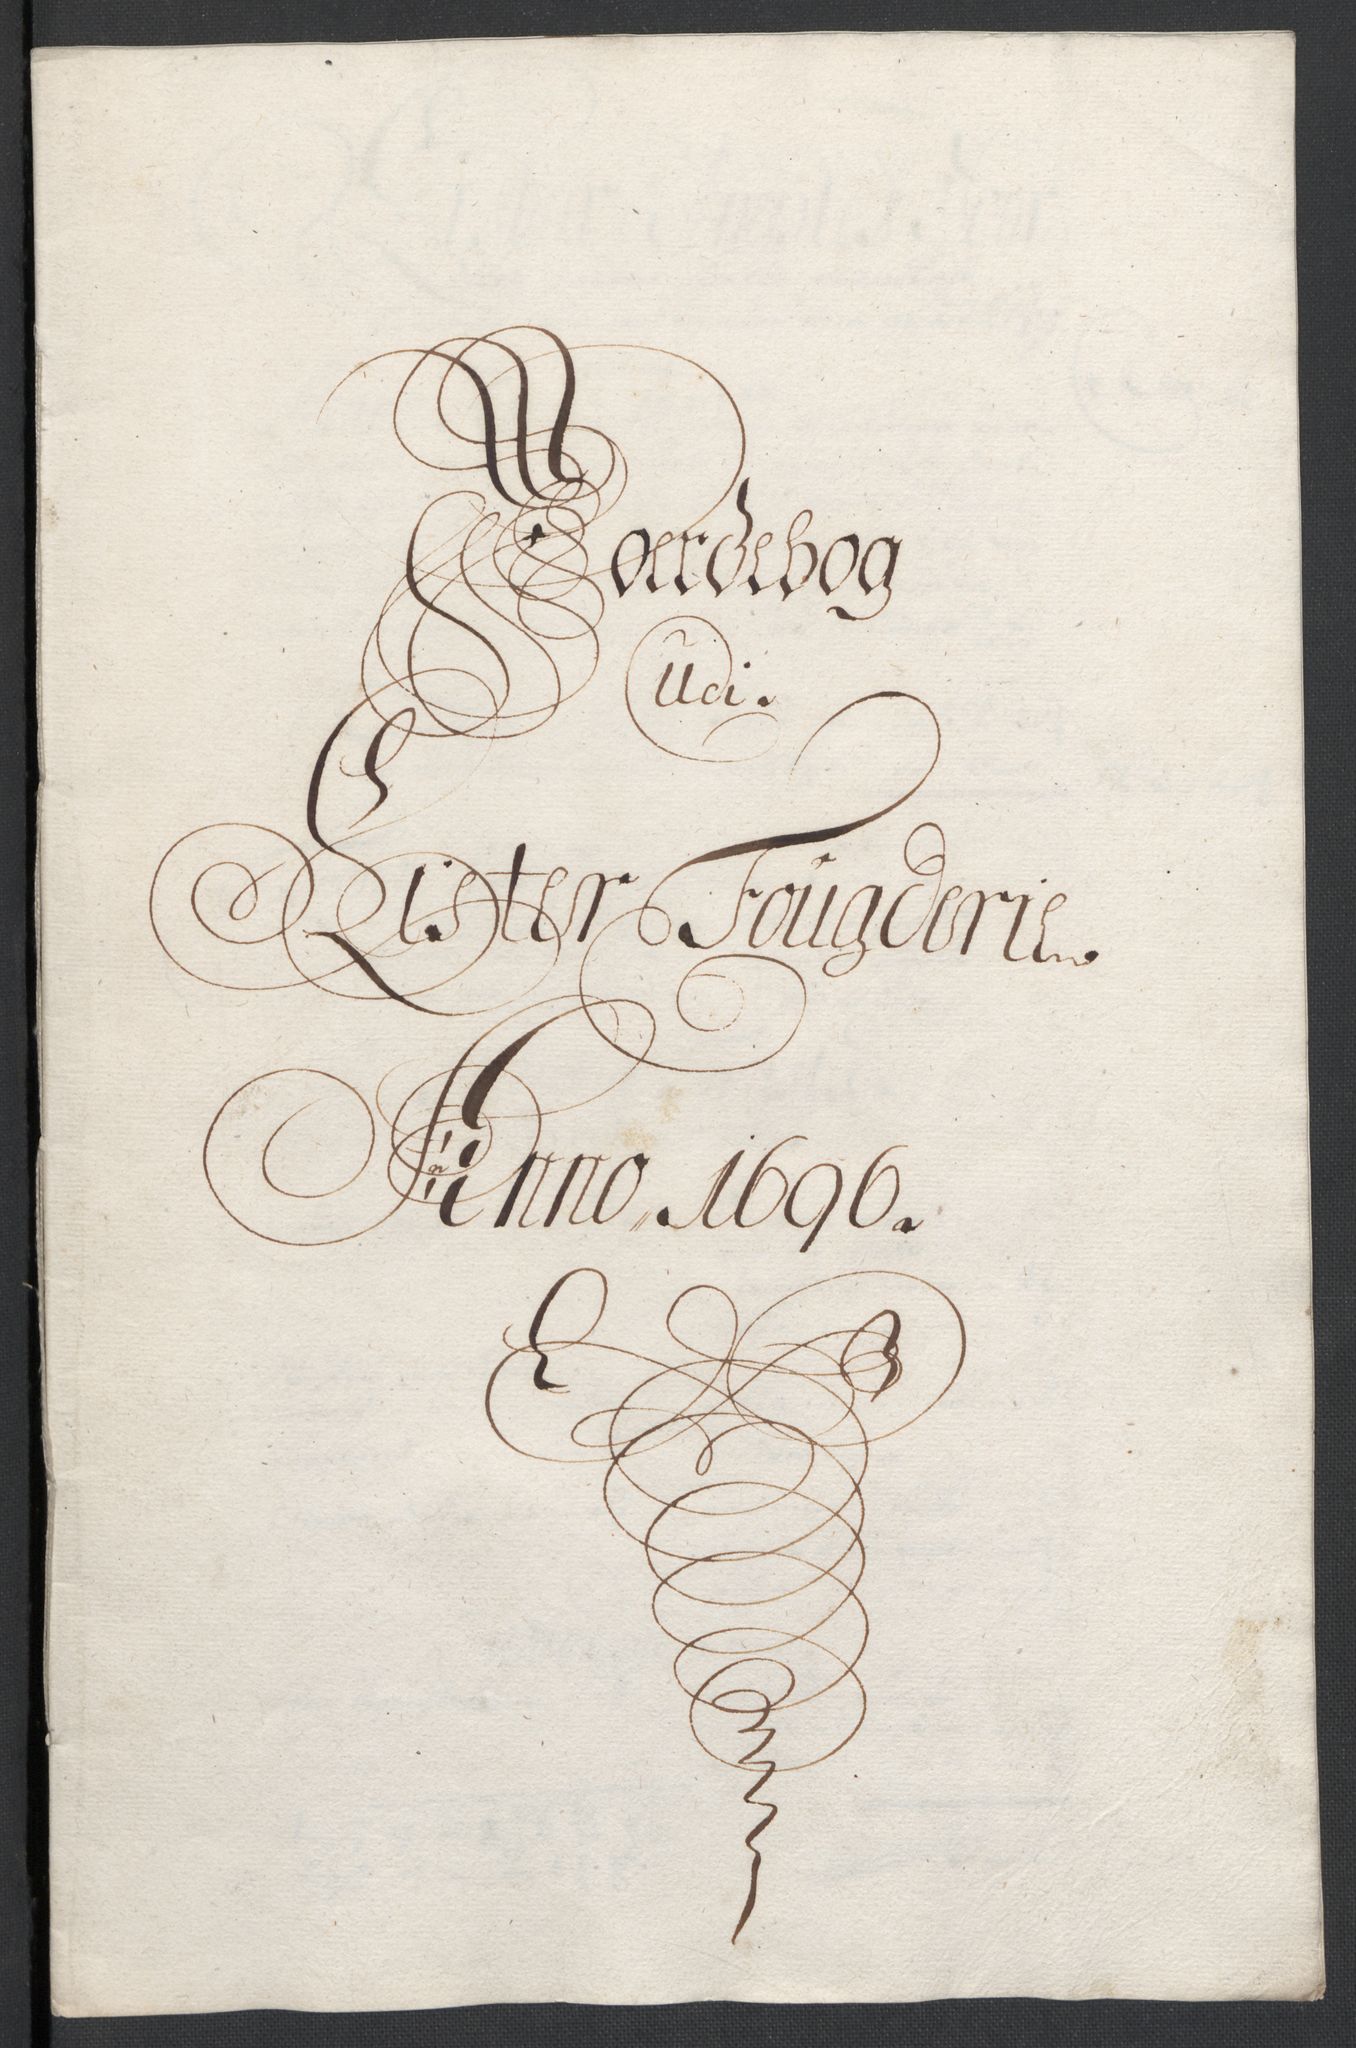 Joerdebog
Udi.
Lister Foùgderie.
Anno 1696.